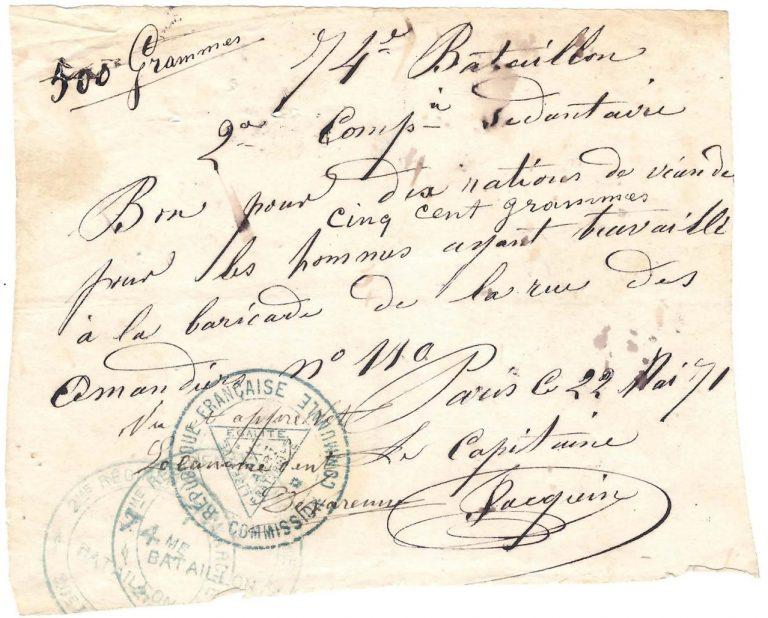 500 Grammes
74e Bataillon
2e Compie sedantaire
Bon pour dix rations de viande
cinq cent grammes
pour les hommes ayant travaillé
à la baricade de la rue des
amandiers no 110
Paris ce 22 Mai 71
Vu et approuvé
Le Capitaine
Jacquin
RÉPUBLIQUE FRANÇAISE
COMMUNALE
COMMISSION
ÉGALITÉ
74ME
BATAILLON
BATAILLON